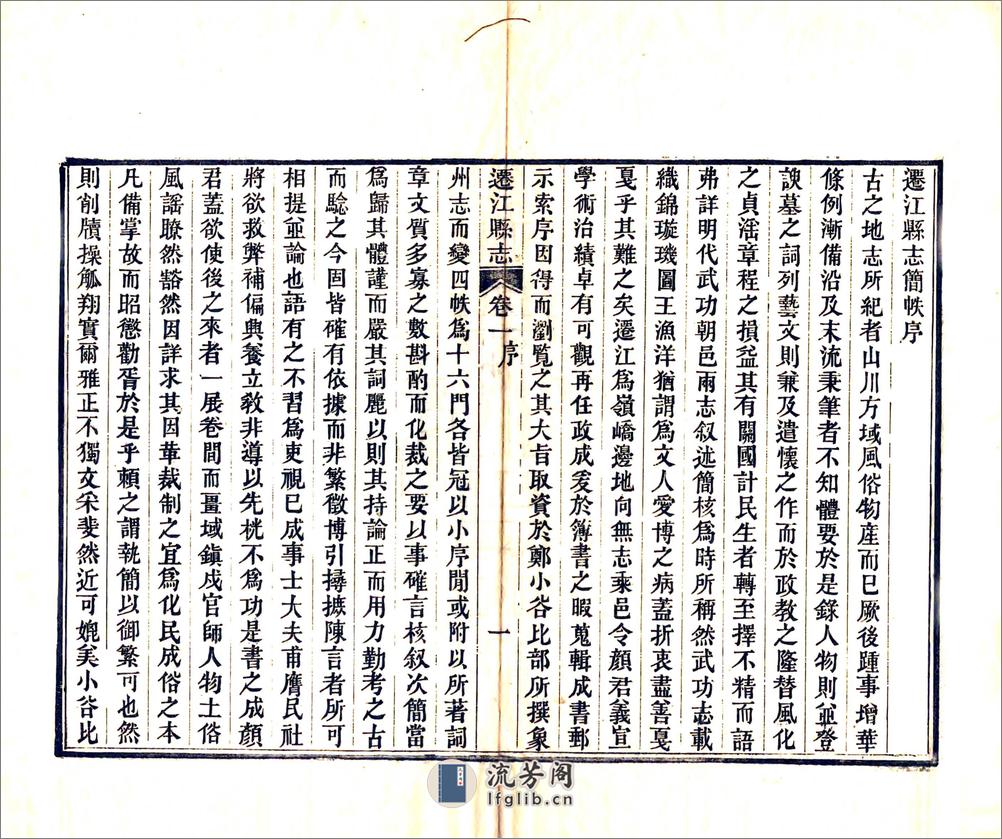 遷江縣志簡帙序
古之地志所紀者山川方域風俗物產而已厥後踵事增華
條例漸備沿及末流秉筆者不知體要於是錄人物則並登
諛墓之詞列藝文則兼及遣懷之作而於政教之隆替風化
之貞滛章程之損益其有關國計民生者轉至擇不精而語
弗詳明代武功朝邑兩志叙述簡核為時所稱然武功志載
織錦璇璣圖王漁洋猶謂為文人愛博之病蓋折衷盡善戛
戛乎其難之矣遷江為嶺嶠邊地向無志乘邑令顏君義宣
學術治績卓有可觀再任政成爰於簿書之暇蒐輯成書郵
示索序因得而瀏覽之其大旨取資於鄭小谷比部所撰象
遷江縣志 卷一序 一
州志而變四帙為十六門各皆冠以小序閒或附以所著詞
章文質多寡之數斟酌而化裁之要以事確言核叙次簡當
為歸其體謹而嚴其詞麗以則其持論正而用力勤考之古
而驗之今固皆確有依據而非繁徵博引撏撦陳言者所可
相提並論也語有之不習為吏視已成事士大夫甫膺民社
將欲救弊補偏興養立敎非導以先桄不為功是書之成顏
君蓋欲使後之來者一展卷間而畺域鎮戍官師人物土俗
風謡瞭然豁然因詳求其因革裁制之宜為化民成俗之本
凡備掌故而昭懲勸胥於是乎賴之謂執簡以御繁可也然
則削牘操觚翔實爾雅正不獨文采斐然近可媲美小谷比
流芳阁
lfglib.cn